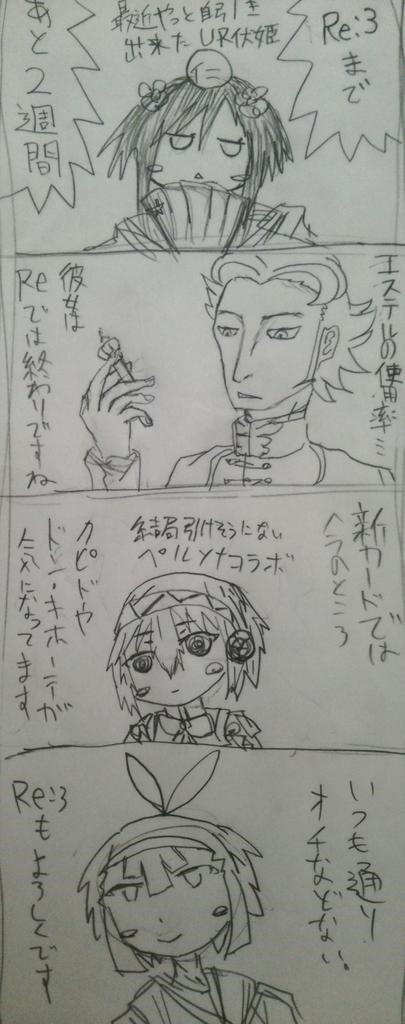 Re:3
まで
最近やっと自引き
出来たUR伏姫
あと2週間
仁
エステルの使用率…
彼女は
Reでは終わりですね
新カードでは
ヘラのところ
結局引けそうにない
ペルソナコラボ
カピドや
ドン・キホーテが
気になってます
いつも通り
オチなどない。
Re:3
もよろしくです